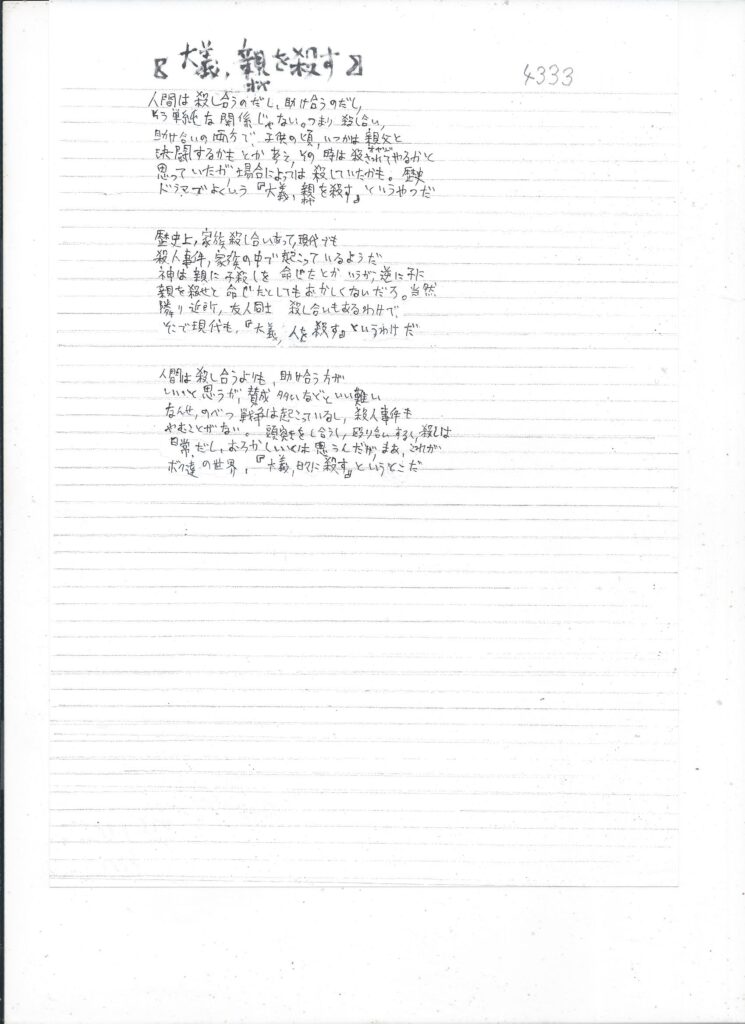 【大義,親を殺す】
4333
人間は殺し合うのだし,助け合うのだし,
そう単純な関係じゃない。つまり殺し合い,
助け合いの両方で,子供の頃,いつかは親父と
決闘するかもとか考え,その時は殺されてやるかと
思っていたが,場合によっては殺していたかも。歴史
ドラマでよくいう『大義,親を殺す』というやつだ
歴史上,家族殺し合いあって,現代でも
殺人事件,家族の中で起こっているようだ
神は親に子殺しを命じたとかいうが,逆に子に
親を殺せと命じたとしてもおかしくないだろ。当然
隣り近所,友人同士 殺し合いもあるわけで,
そこで現代も,『大義,人を殺す』というわけだ
人間は殺し合うよりも,助け合う方が
いいと思うが,賛成多いなどといい難い
なんせ,のべつ戦争は起こっているし,殺人事件も
やむことがない。をし合うし,殴り合いするし,殺しは
日常だし,おろかしいとは思うんだが,まあ,これが
ボク達の世界,『大義,に殺す』というとこだ